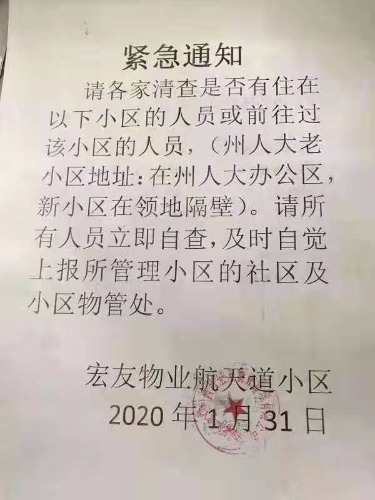 紧急通知
请各家清查是否有住在
以下小区的人员或前往过
该小区的人员，（州人大老
小区地址：在州人大办公区，
新小区在领地隔壁）。请所
有人员立即自查，及时自觉
上报所管理小区的社区及
小区物管处。
宏友物业航天道小区
2020 年 1 月 31 日